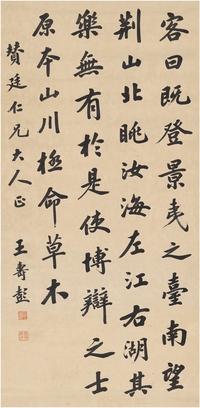 客曰既登景夷之臺南望
荆山北眺汝海左江右湖其
樂無有於是使博辯之士
原本山川極命草木
贊廷仁兄大人正
王壽彭